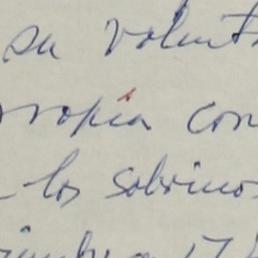 su volunt
ropia con
los sobrinos